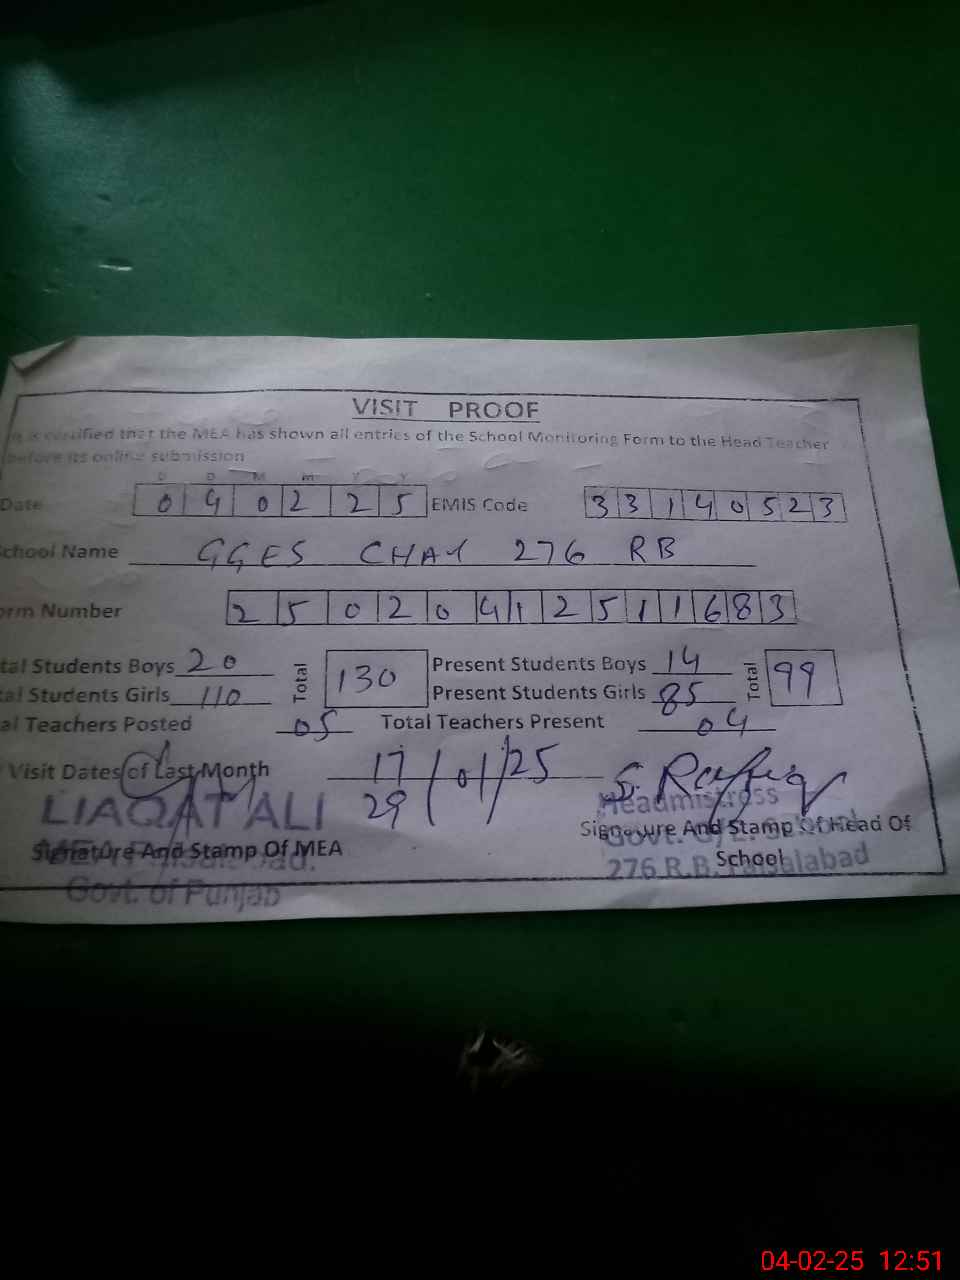 VISIT PROOF
It is certified that the MEA has shown all entries of the School Monitoring Form to the Head Teacher
before its online submission
D D M m Y Y
Date 0 4 0 2 2 5 EMIS Code 3 3 1 4 0 5 2 3
School Name GGES CHAK 276 RB
orm Number 2 5 0 2 0 4 1 2 5 1 1 6 8 3
tal Students Boys 20 Total 130 Present Students Boys 14 Total 99
tal Students Girls 110 Present Students Girls 85
al Teachers Posted 05 Total Teachers Present 04
Visit Dates of Last Month 17/01/25
29
LIAQAT ALI
Signature And Stamp Of MEA
Govt. of Punjab
S. Rafiq
Headmistress
Signature And Stamp Of Head Of
School
Govt.
276 R.B. Faisalabad
04-02-25 12:51